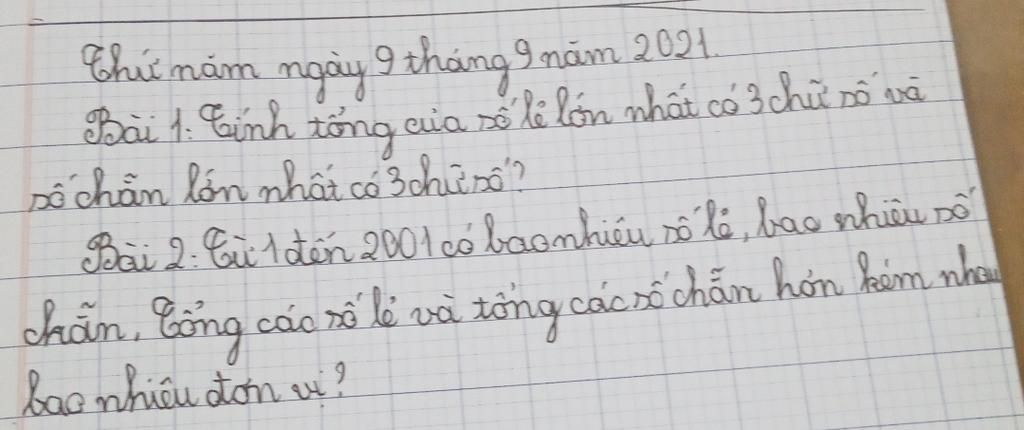 Thứ năm ngày 9 tháng 9 năm 2021.
Bài 1: Tính tổng của số lẻ lớn nhất có 3 chữ số và
số chẵn lớn nhất có 3 chữ số?
Bài 2: Từ 1 đến 2001 có bao nhiêu số lẻ, bao nhiêu số
chẵn, Tổng các số lẻ và tổng các số chẵn hơn kém nhau
bao nhiêu đơn vị?